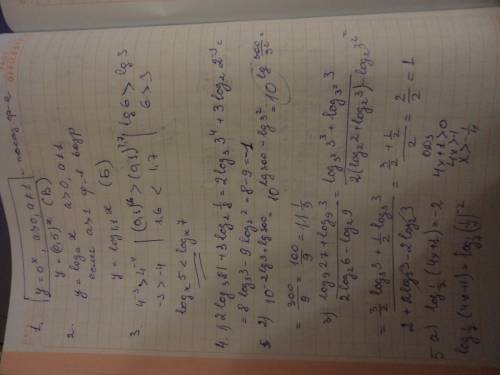 1. y=aˣ, a>0, a≠1 - показ. ф-я
y=(0,2)ˣ (В)
2. y=logₐx a>0, a≠1
если a>1 ф-я возр
y=log₁,₁x (Б)
3 4⁻³>4⁻⁴ | | lg6>lg3
-3>-4 | 1,6 < 1,7 | 6>3
log₂5<log₂7
4. 1) 2log₃81+3log₂1/8=2log₃3⁴+3log₂2⁻³=
=8log₃3-9log₂2=8-9=-1
5 2) =10^(lg300-lg3²)=10^(lg 300/3²)=
=300/9=100/9=11 1/9
3) (log₉27+log₉3)/(2log₂6-log₂9)=(log₃²3³+log₃²3)/(2(log₂2+log₂3)-log₂3²)=
=(3/2log₃3+1/2log₃3)/(2+2log₂3-2log₂3)=(3/2+1/2)/2=2/2=1
5 а) log½(4x+1)=-2
log½(4x+1)=log½(½)⁻²
ОДЗ
4x+1>0
4x>-1
x>-1/4